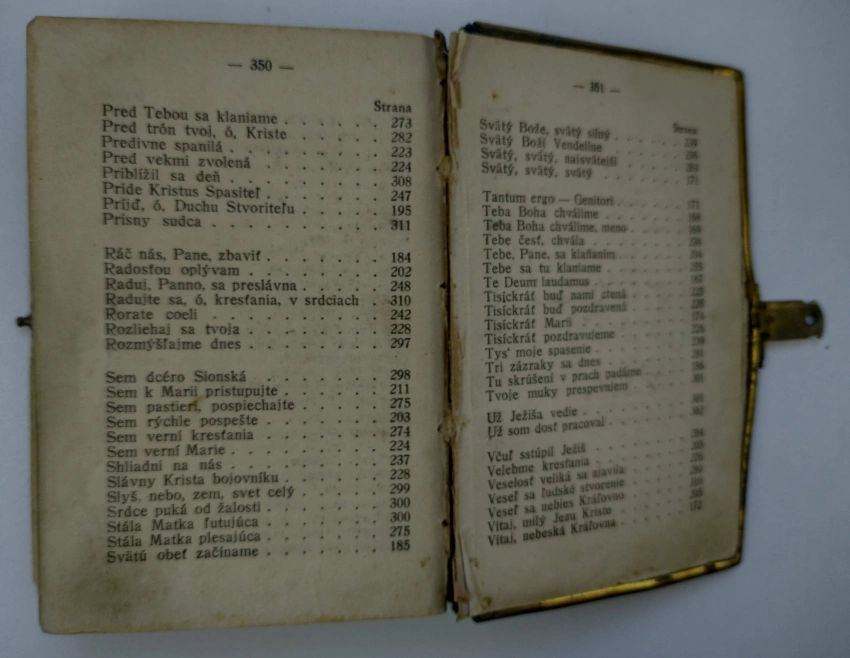 — 350 —
Strana
Pred Tebou sa klaniame . . . . . . 273
Pred trón tvoj, ó, Kriste . . . . . . 282
Predivne spanilá . . . . . . . 223
Pred vekmi zvolená . . . . . . 224
Priblížil sa deň . . . . . . . 308
Príde Kristus Spasiteľ . . . . . . 247
Prijď, ó, Duchu Stvoriteľu . . . . . 195
Prísny sudca . . . . . . . . 311
Ráč nás, Pane, zbaviť . . . . . . 184
Radosťou oplývam . . . . . . 202
Raduj, Panno, sa preslávna . . . . . 248
Radujte sa, ó, kresťania, v srdciach . 310
Rorate coeli . . . . . . . . 242
Rozliehaj sa tvoja . . . . . . 228
Rozmýšľajme dnes . . . . . . 297
Sem dcéro Sionská . . . . . . 298
Sem k Marii pristupujte . . . . . 211
Sem pastieri, pospiechajte . . . . . 275
Sem rýchle pospešte . . . . . . 203
Sem verní kresťania . . . . . . 274
Sem verní Marie . . . . . . . 224
Shliadni na nás . . . . . . . 237
Slávny Krista bojovníku . . . . . 228
Slyš, nebo, zem, svet celý . . . . . 299
Srdce puká od žalosti . . . . . . 300
Stála Matka ľutujúca . . . . . . 300
Stála Matka plesajúca . . . . . . 275
Svätú obeť začíname . . . . . . 185
— 351 —
Strana
Svätý Bože, svätý silný
Svätý Boží Vendelíne
Svätý, svätý, najsvätejší
Svätý, svätý, svätý . . . . . . 171
Tantum ergo — Genitori . . . . . 171
Teba Boha chválime
Teba Boha chválime, meno
Tebe česť, chvála
Tebe, Pane, sa klaňiam
Tebe sa tu klaniame
Te Deum laudamus
Tisíckráť buď nami ctená
Tisíckráť buď pozdravená
Tisíckráť Marii
Tisíckráť pozdravujeme
Tys' moje spasenie
Tri zázraky sa dnes
Tu skrúšení v prach padáme
Tvoje muky prespevujem
Už Ježiša vedie
Už som dosť pracoval
Včuľ sstúpil Ježiš
Velebme kresťania
Veselosť veliká sa zjavila
Veseľ sa ľudské stvorenie
Veseľ sa nebies Kráľovno
Vítaj, milý Jezu Kriste
Vitaj, nebeská Kráľovna . . . . . 172